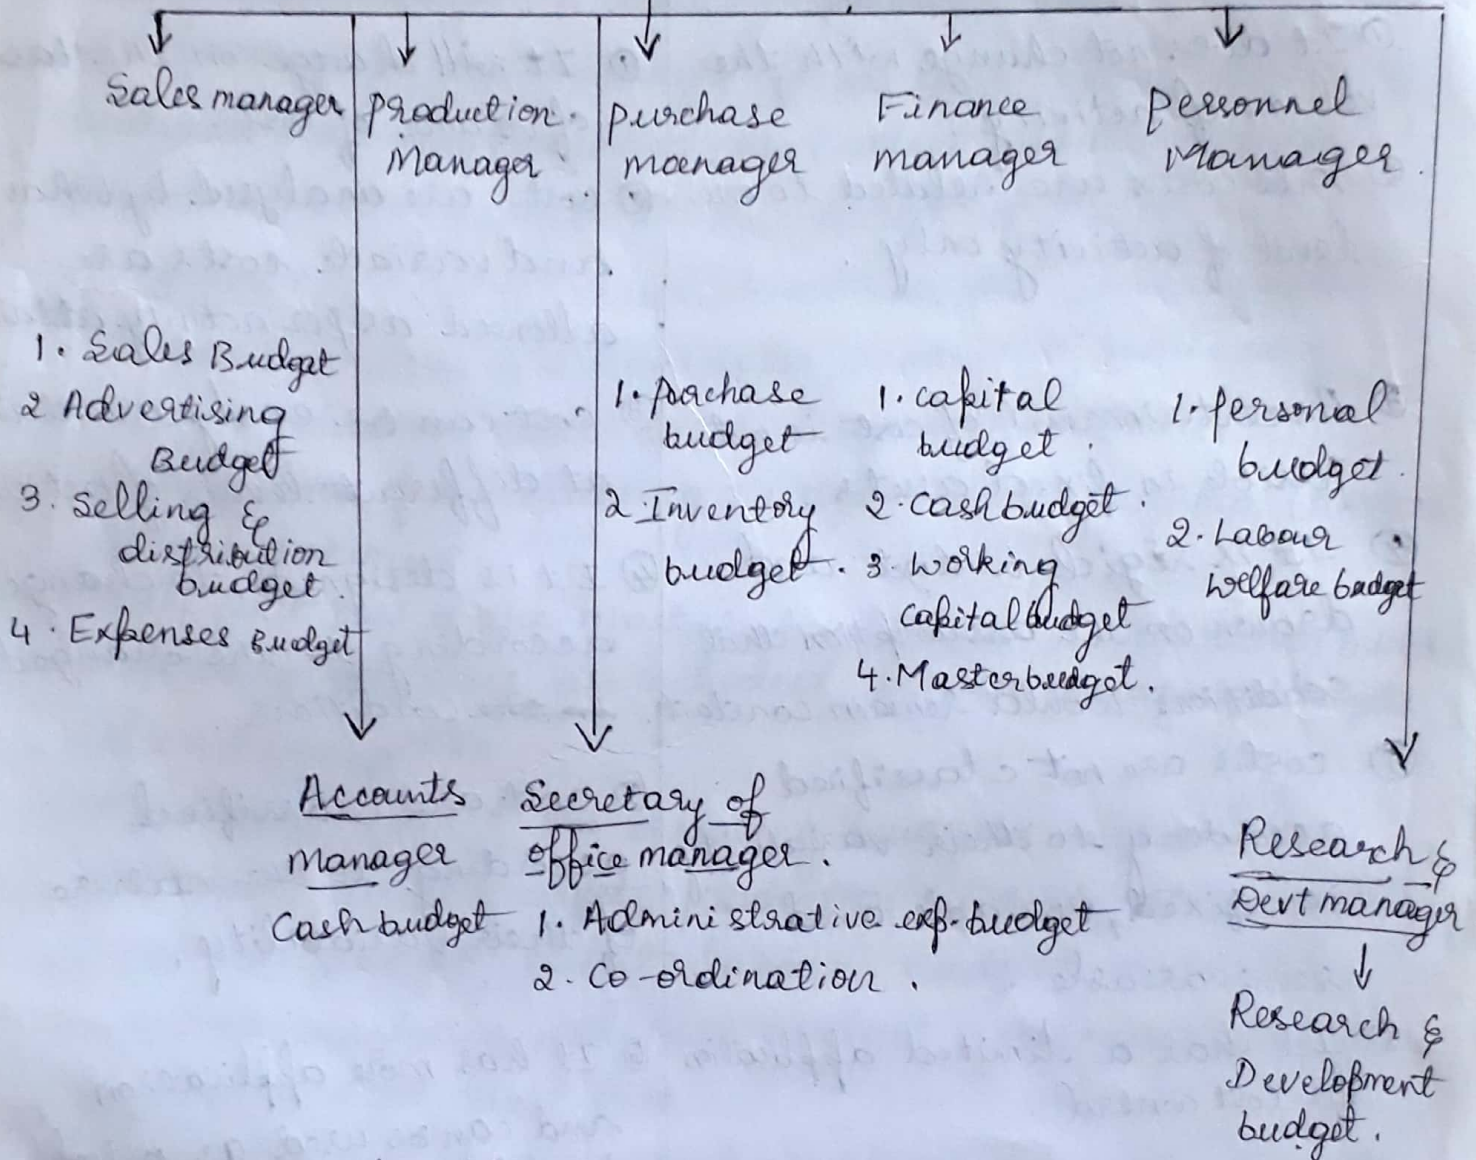 Sales manager
Production
Manager
purchase
manager
Finance
manager
personnel
Manager
1. Sales Budget
2 Advertising
Budget
3. Selling &
distribution
budget.
4. Expenses Budget
1. Purchase
budget
2 Inventory
budget.
1. capital
budget.
2. Cash budget.
3. Working
capital budget
4. Master budget.
1. personal
budget.
2. Labour
Welfare budget
Accounts
manager
Cash budget
Secretary of
office manager.
1. Administrative exp. budget
2. Co-ordination.
Research &
Devt manager
Research &
Development
budget.